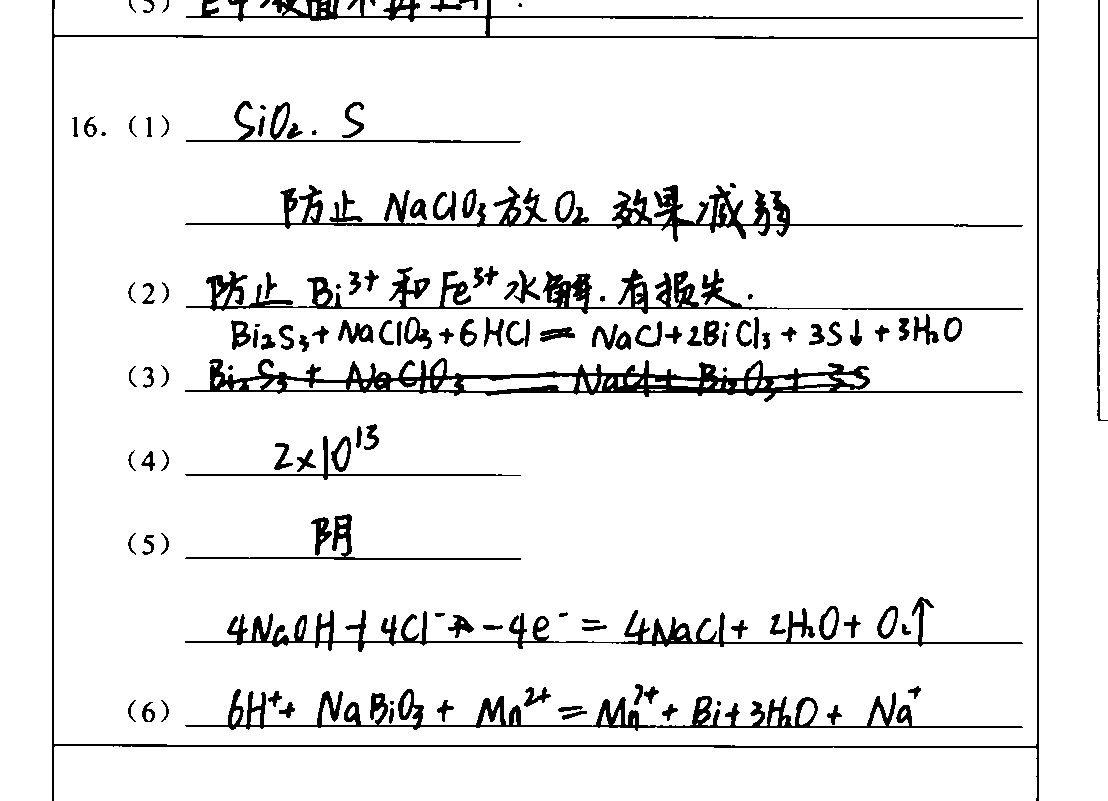 (5) E中液面不再上升.
16. (1) SiO₂. S
防止 NaClO₃放O₂ 效果减弱
(2) 防止 Bi³⁺ 和 Fe³⁺ 水解. 有损失.
Bi₂S₃+NaClO₃+6HCl = NaCl+2BiCl₃+3S↓+3H₂O
(3) Bi₂S₃ + NaClO₃ = NaCl + Bi₂O₃ + 3S
(4) 2×10¹³
(5) 阴
4NaOH+4Cl⁻-4e⁻ = 4NaCl+2H₂O+O₂↑
(6) 6H⁺+NaBiO₃+Mn²⁺=Mn⁷⁺+Bi+3H₂O+Na⁺